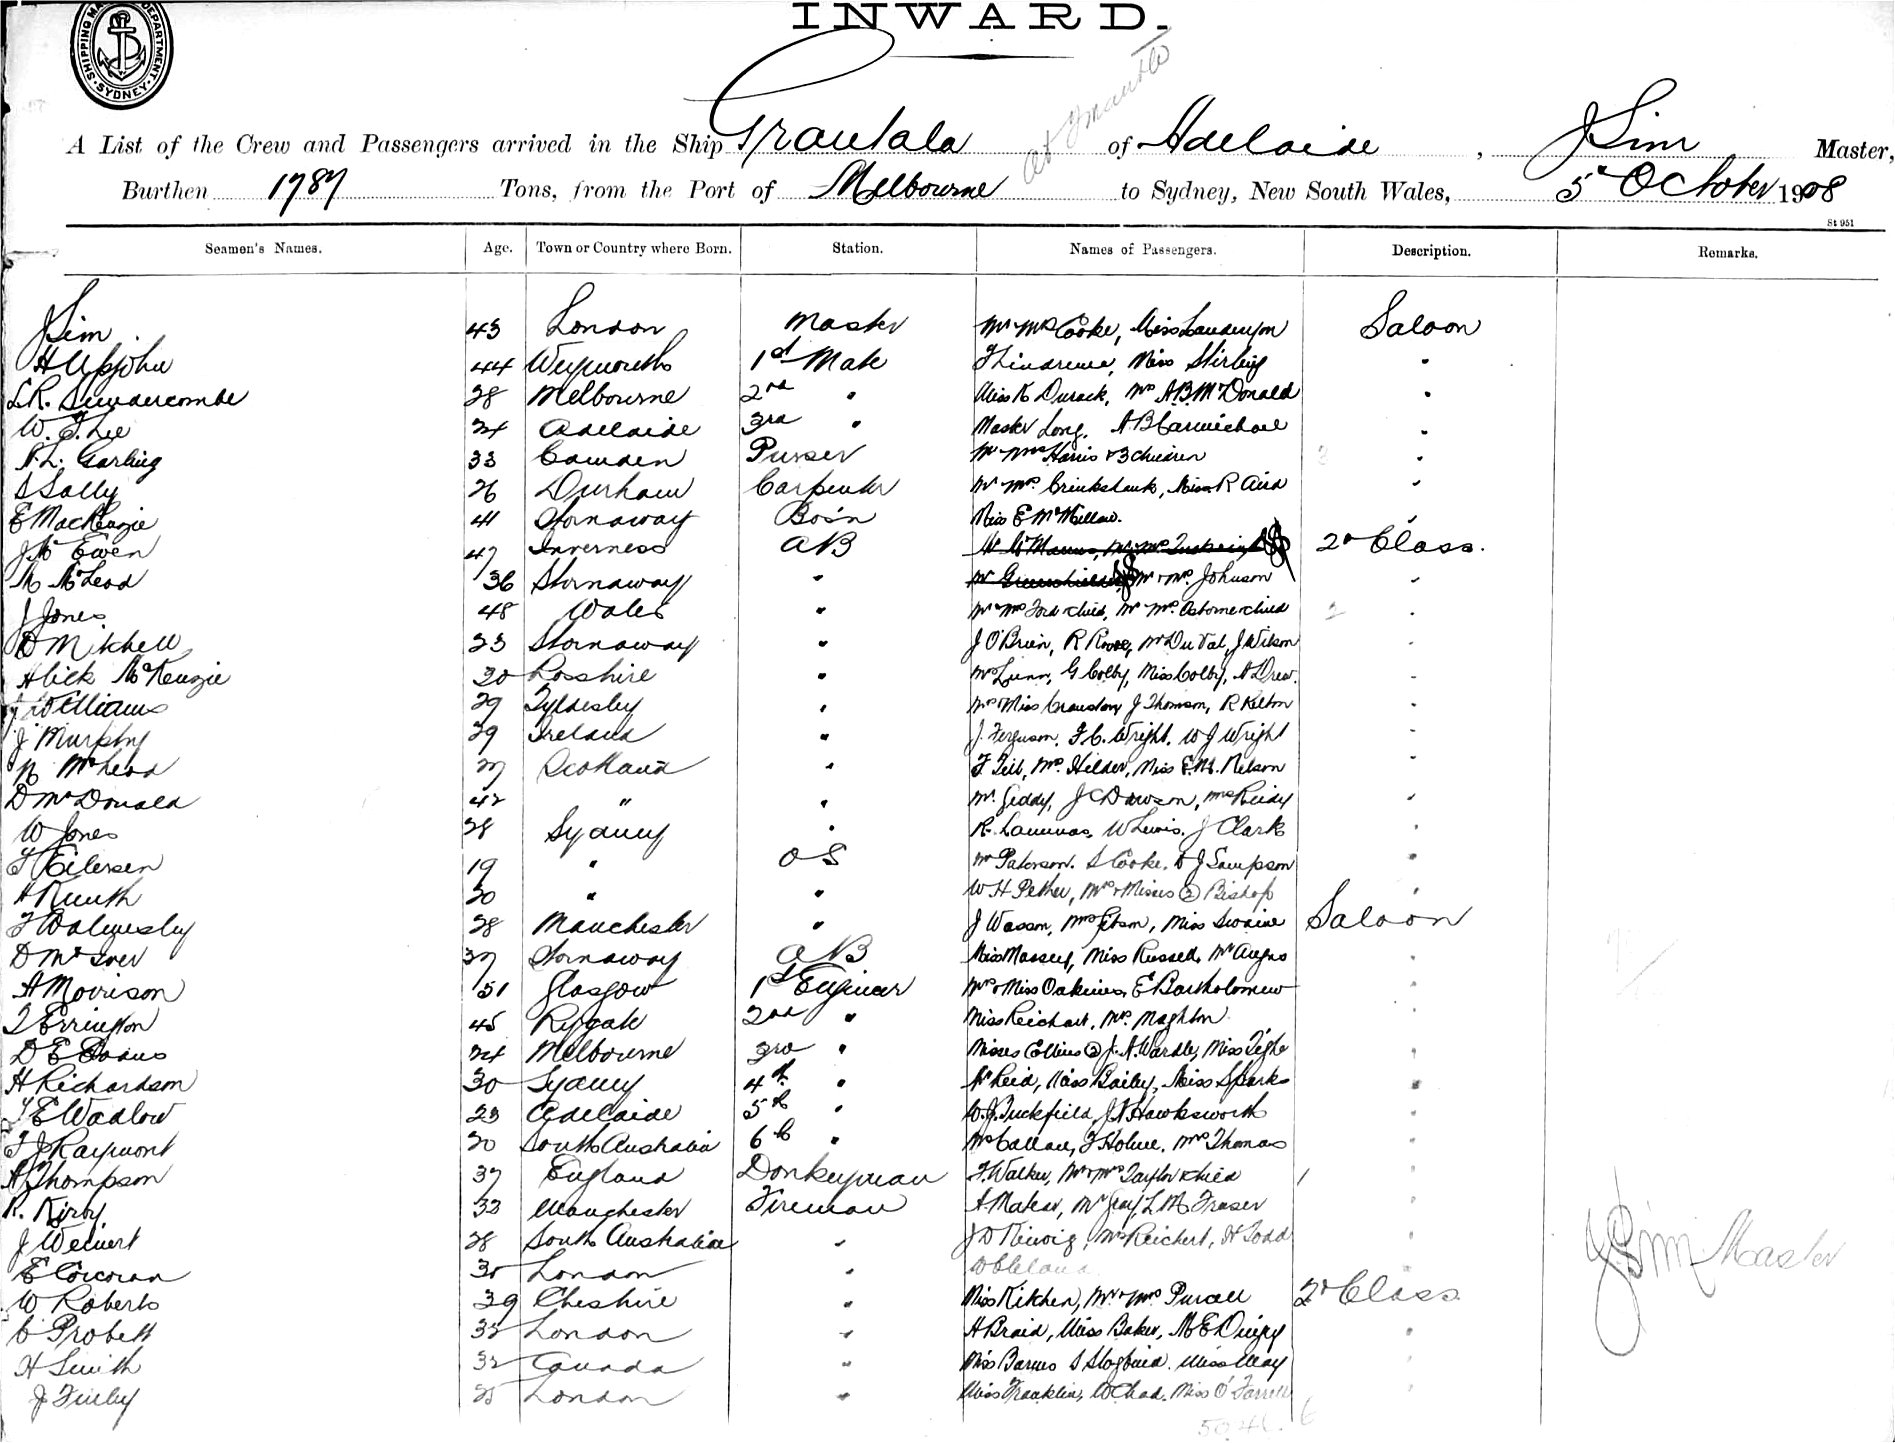 INWARD.
SHIPPING MA DEPARTMENT. SYDNEY.
A List of the Crew and Passengers arrived in the Ship Grantala of Adelaide, J Sim Master,
Burthen 1787 Tons, from the Port of Melbourne to Sydney, New South Wales, 5th October 1908
St 951
Seamen's Names. Age. Town or Country where Born. Station. Names of Passengers. Description. Remarks.
J Sim 43 London Master Mr Mrs Cooke, Miss Saloon
H Upjohn 44 Weymouth 1st Mate Miss Stirling "
L.R. Sundercombe 28 Melbourne 2nd " Miss K Durack, Mr A.B. McDonald "
W. J. Lee 24 Adelaide 3rd " Master Long, A B Carmichael "
A.L. Garling 33 Camden Purser Mr Mrs Harris & 3 children "
S Sally 26 Durham Carpenter Mr Mrs Cruikshank, Miss R Aird "
E MacKenzie 41 Stornaway Bos'n Miss E McMillan. "
J Mc Ewen 47 Inverness AB 2d Class.
M McLeod 36 Stornaway " Mr & Mrs Johnson "
J Jones 48 Wales " Mr Mrs Ford & child, Mr Mrs Osborne & child "
D Mitchell 23 Stornaway " J O'Brien, R Mr Du Val, J Wilson "
Alick McKenzie 30 Rosshire " Mrs Lunn, G Colby, Miss Colby, A Drew. "
J Williams 29 Tyldesley " Mrs & Miss Cranston, J Thomson, R Kelton "
J Murphy 29 Ireland " J. Ferguson, F.C. Wright, W J Wright "
N McLeod 27 Scotland " F Mrs Hilder, Miss E.M. Nelson "
D McDonald 42 " " Mr. Geddy, J C Dawson, Mrs Reidy "
W Jones 28 Sydney " R. Lammas, W Lewis, J Clark "
F Eilersen 19 " OS Mr Paterson, S Cooke, D J Sampson "
A 20 " " W H Pether, Mrs & Misses (2) Bishop "
F Walmesley 28 Manchester " J Wasson, Mrs Gibson, Miss Swaine Saloon
D McIver 37 Stornaway AB Miss Massey, Miss Russell, Mr Angus "
A Morrison 51 Glasgow 1st Engineer Mrs & Miss E Bartholomew "
T Errington 45 Rygate 2nd " Miss Reichart, Mrs. Maghton "
D E Evans 24 Melbourne 3rd " Misses Collins (2) J. A. Wardle, Miss Tighe "
H Richardson 30 Sydney 4th " Mr Reid, Miss Bailey, Miss Sparks "
T E Wadlow 23 Adelaide 5th " W. J. Tuckfield, J N Hawksworth "
F J Raymont 20 South Australia 6th " Mrs Callan, F Holme, Mrs Thomas "
A Thompson 37 England Donkeyman F. Walker, Mr & Mrs Taylor & child "
R. Kirby. 33 Manchester Fireman A. Mr Gray, L M Fraser "
J Weinert 28 South Australia " Mrs Reichert, H Todd "
E Corcoran 30 London " "
W Roberts 39 Cheshire " Miss Kitchen, Mr & Mrs Purcell 2d Class
C Probett 32 London " H Braid, Miss Baker, "
H Smith 32 Canada " Miss Barnes Miss May "
J Finley 25 London " Miss Franklin, Miss O'Farrell "
J Sim Master